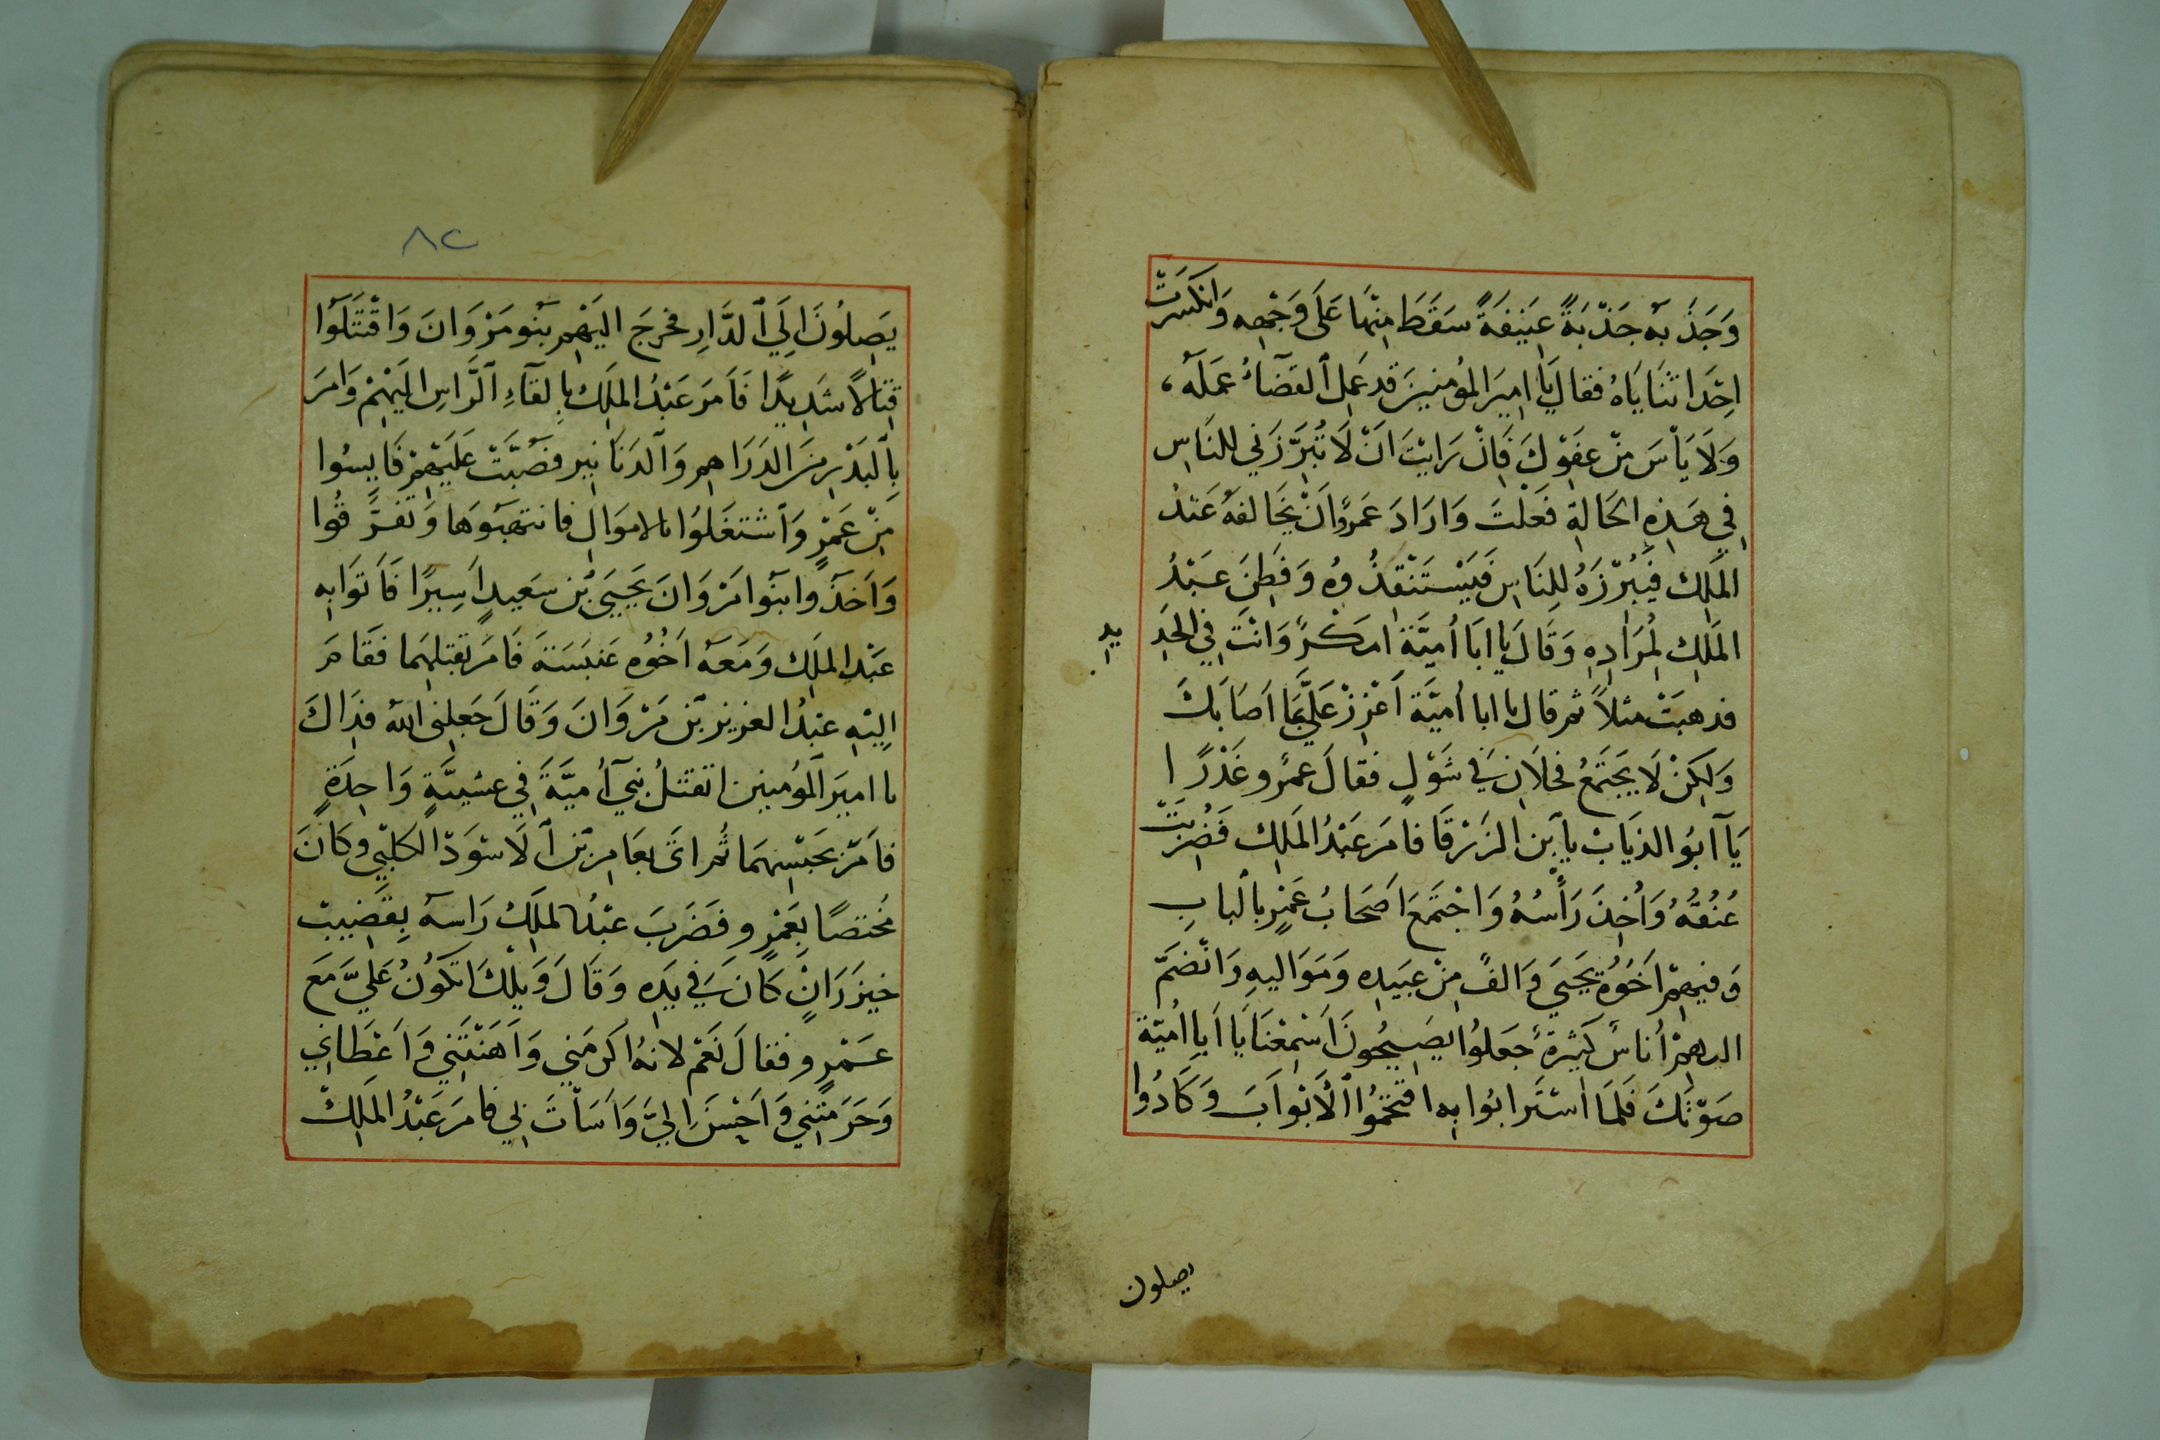 وَجَذَبَهُ جَذْبَةً عَنِيفَةً سَقَطَ مِنْهَا عَلَى وَجْهِهِ وَانْكَسَرَتْ
اِحْدَا ثَنَايَاهُ فقالَ يَا امِيرَ المُومنينَ قد عَمِلَ ٱلقضَآءُ عمَلَهُ،
وَلَا يَأْسَ مِنْ عَفوِكَ فَاِنْ رَايْتَ انْ لَا تُبَرِّزَني للنَاسِ
فِي هَذِهِ الحَالةِ فَعَلْتَ وَارَادَ عَمرٌو اَنْ يخَالفهُ عَبْدُ
المَلِكِ فيُبْرِزَهُ لِلنَاسِ فَيَسْتَنْقِذُوهُ وَفَطِنَ عَبْدُ
المَلِكِ لِمُرَادِهِ وَقَالَ يَا ابَا اُميَّةَ امَكْرًا وَانْتَ فِي الحَدِ
يدِ
فدهبَتْ مثلاً ثم قال يا ابا اُميَّة اَعْزِزْ عَلَيَّ بمَا اَصَابَكَ
وَلكِنْ لَا يَجتَمعُ فحْلَانِ فِي شَوْلٍ فقالَ عمرٌو غَدْرًا
يَا آبُو الذبَابْ يا ابْنِ الزرْقَا فامَرَ عَبْدُ المَلِكِ فَضُرِبَتْ
عُنُقُهُ وَاُخِذَ رَأْسُهُ وَاجْتَمَعَ اَصَحَابُ عَمْرٍ بالْبابِ
وَفيهِمْ اَخُوُهُ يحيَى وَالفٌ مِنْ عبَيدِهِ وَمَوَاليهِ وَانْضَمَّ
اليهِمْ اُناسٌ كَثيرَةٌ جَعلوُا يصِيحُونَ اَسْمِعْنَا يَا اَبا اُميَّة
صَوْتَكَ فَلمَا اسْتَرابُوا بهِ اقتحمُوا ٱلْاَبْوَابَ وَكَادُوا
يصلون
٨٢
يَصِلُونَ اِلَي ٱلدَّارِ فخرجَ اليْهِم بَنُو مَرْوَانَ وَاقْتَتَلُوا
قتالاً شَدِيدًا فَاَمَرَ عَبْدُ المَلِكِ بِالقآءِ ٱلرَّاسِ اليْهِمْ وَامَرَ
بِالْبدَرِ مِنَ الدَرَاهِمِ وَٱلدَنَانيرِ فصُبَّتْ عَليْهِمْ فَايِسُوا
مِنْ عَمْرٍ وَٱشتغَلوُا بالاموَالِ فانتهبُوهَا وَتفرَّقُوا
وَاَخَذُوا بَنُوا مَرْوَانَ يَحيَى بْنِ سَعِيدٍ اَسِيرًا فَاَتَوَا بهِ
عَبْدِ الملِكِ وَمَعَهُ اَخُوُهُ عَنبَسَة فَامَرَ بقتلِهِما فقَامَ
اِليْهِ عبْدُ العزيزِ بْن مَرْوَانَ وَقَالَ جَعلِنى اللهُ فدَاكَ
يا اميرَ ٱلمُومِنين اتقتلُ بَنِي اُميَّةَ فِي عشيَّةٍ وَاحِدَةٍ
فاَمرَ بحَبْسِهِمَا ثُم اتَى بعَامِر بْنِ ٱلَاسْوَدْ الكلبِّيِ وَكانَ
مُختصًا بِعَمْرٍو فَضَرَبَ عبْدُ الملِكِ رَاسهُ بِقَضِيبْ
خيزَرَانٍ كَانَ فِي يَدِهِ وَقَالَ وَيْلكَ اتكونُ عَليَّ مَع
عَمْرٍو فقالَ نَعَمْ لانهُ اكرمَني وَاَهَنْتَني وَاَعْطَانِي
وَحَرَمَتني وَاَحْسَنَ اِلَيَّ وَاَسَاْتَ لِي فامَرَ عَبْدُ المَلِكِ